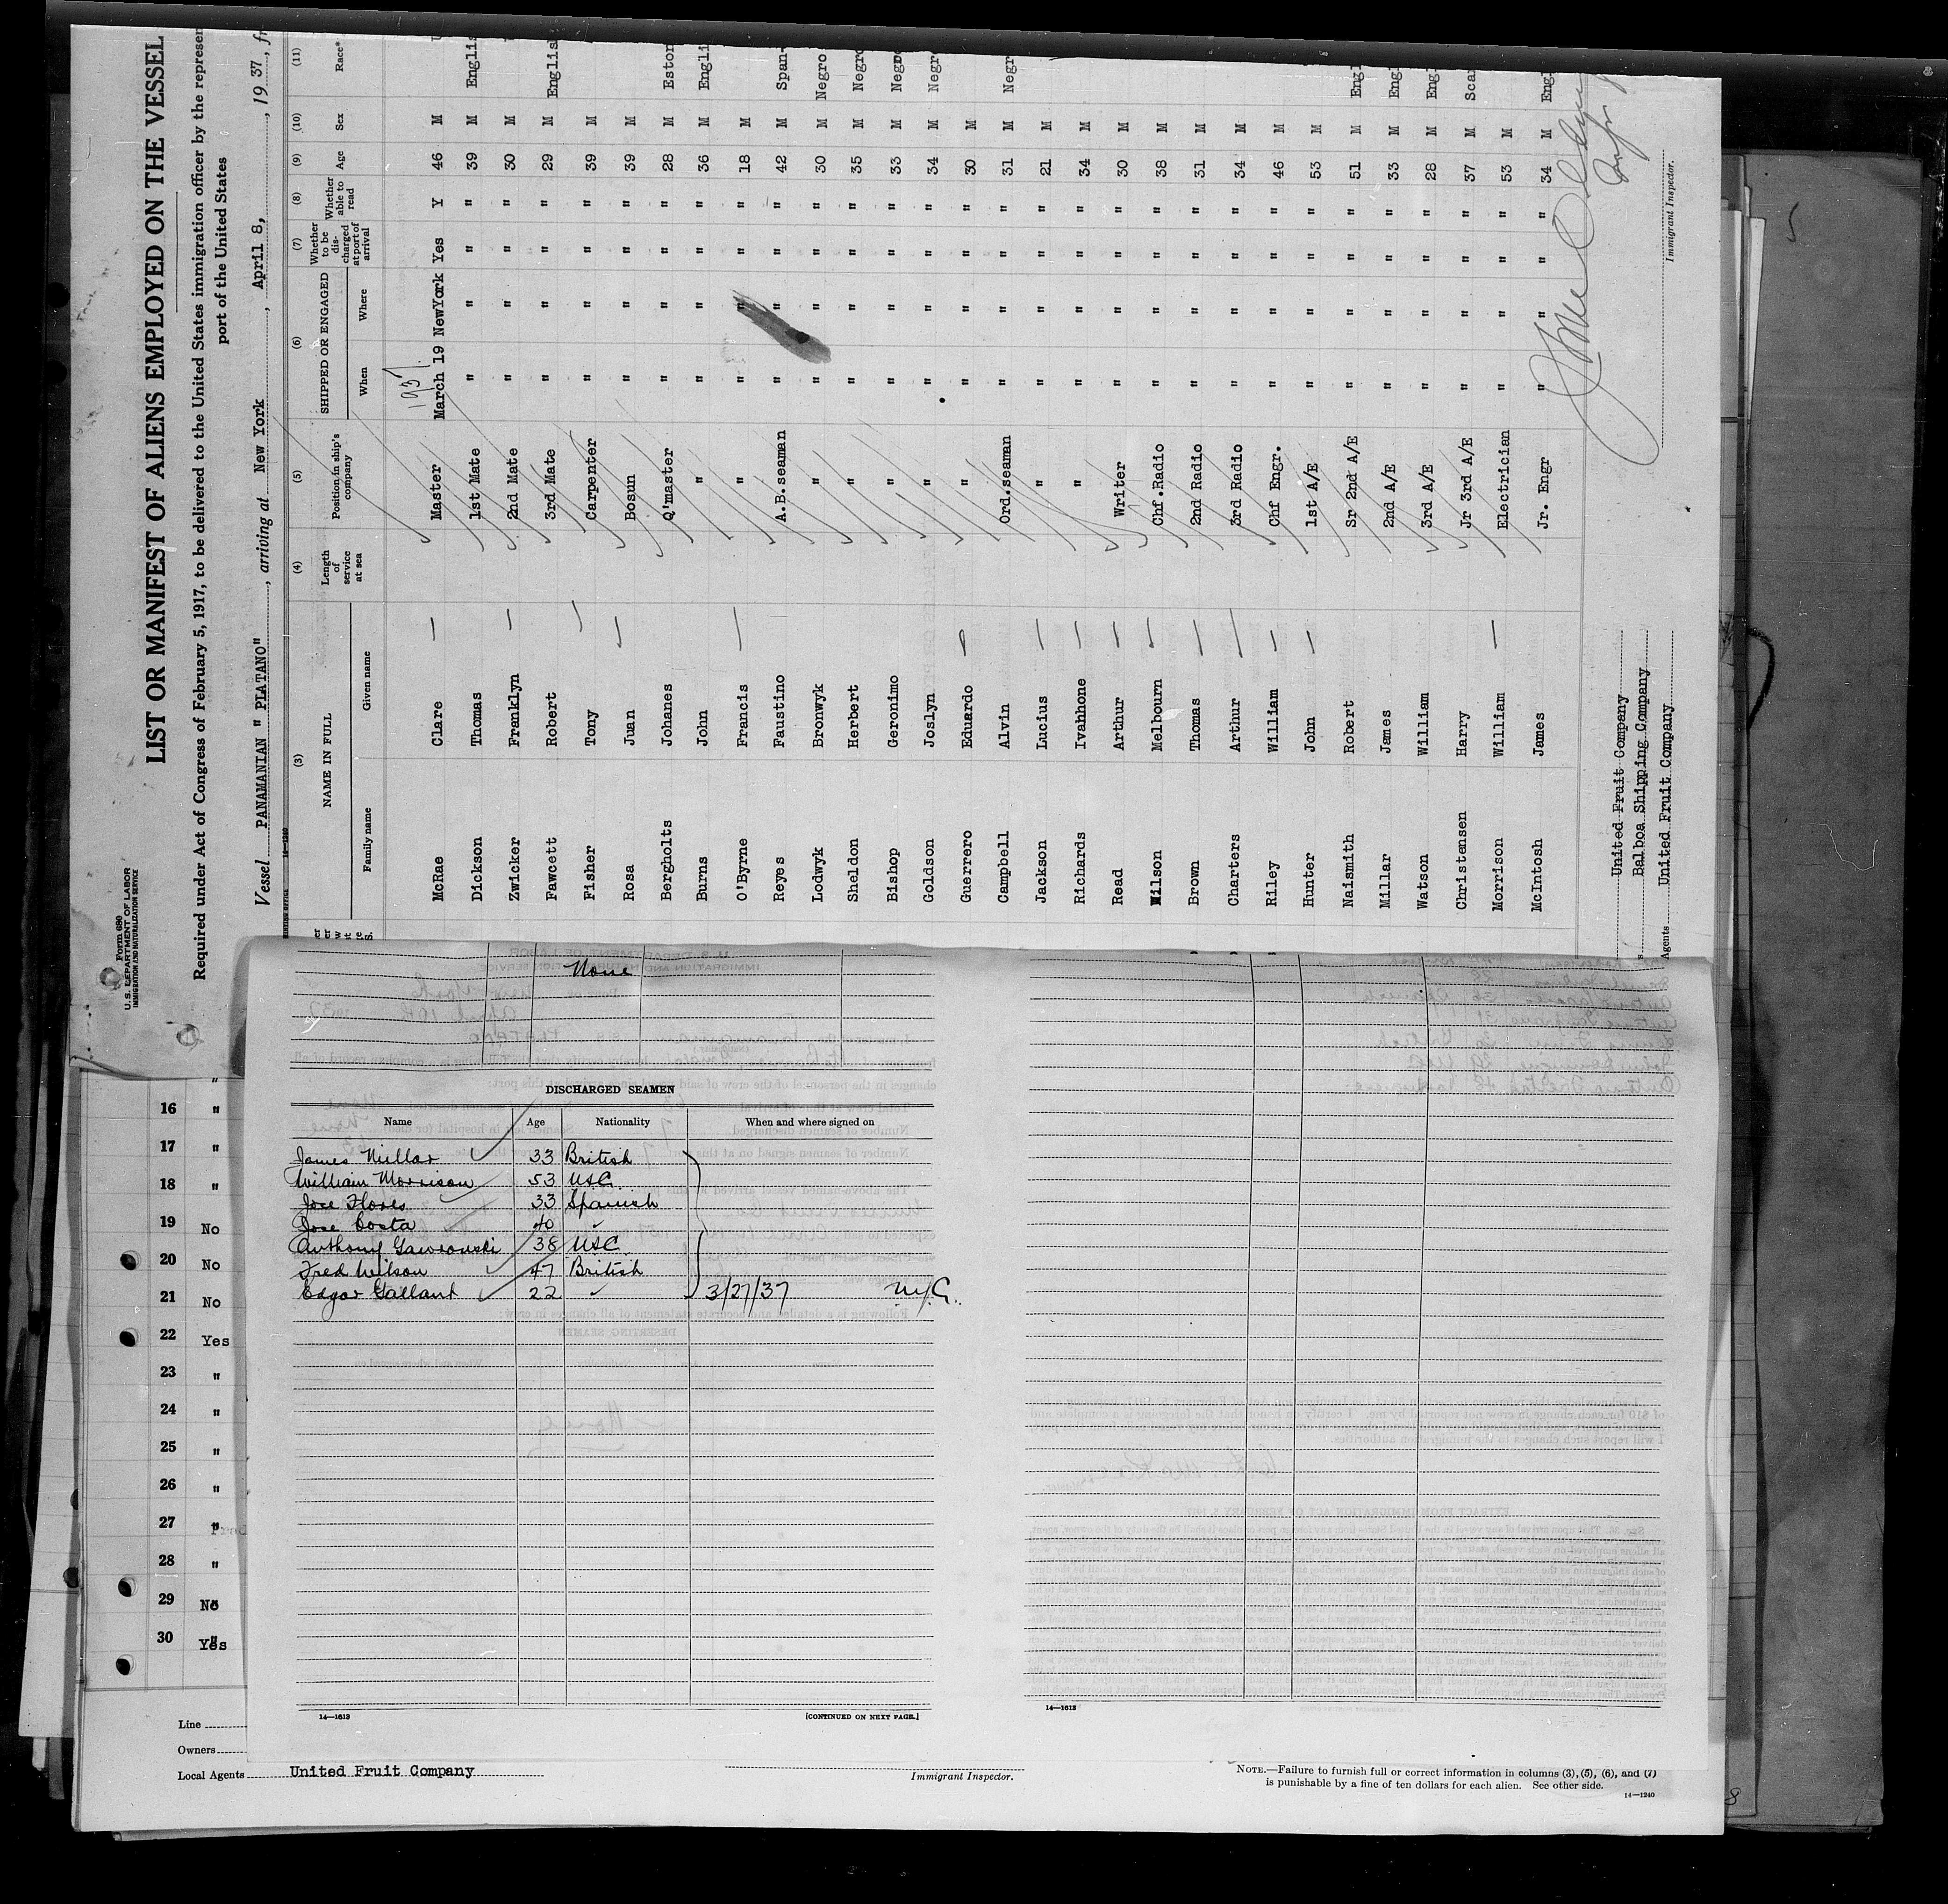 Form 680
U. S. DEPARTMENT OF LABOR
IMMIGRATION AND NATURALIZATION SERVICE
LIST OR MANIFEST OF ALIENS EMPLOYED ON THE VESSEL
Required under Act of Congress of February 5, 1917, to be delivered to the United States immigration officer by the represen
port of the United States
Vessel PANAMANIAN " PLATANO", arriving at New York, April 8, , 19 37, fr
14—1240
(3) (4) (5) (6) (7) (8) (9) (10) (11)
NAME IN FULL Length of service at sea Position in ship's company SHIPPED OR ENGAGED Whether to be discharged at port of arrival Whether able to read Age Sex Race*
Family name Given name When Where
1937
McRae Clare Master March 19 NewYork Yes Y 46 M
Dickson Thomas 1st Mate " " " " 39 M Englis
Zwicker Franklyn 2nd Mate " " " " 30 M
Fawcett Robert 3rd Mate " " " " 29 M English
Fisher Tony Carpenter " " " " 39 M
Rosa Juan Bosun " " " " 39 M
Bergholts Johanes Q'master " " " " 28 M Eston
Burns John " " " " " 36 M Engli
O'Byrne Francis " " " " " 18 M
Reyes Faustino A.B.seaman " " " " 42 M Span-
Lodwyk Bronwyk " " " " " 30 M Negro
Sheldon Herbert " " " " " 35 M Negro
Bishop Geronimo " " " " " 33 M Negro
Goldson Joslyn " " " " " 34 M Negr
Guerrero Eduardo " " " " " 30 M
Campbell Alvin Ord.seaman " " " " 31 M Negr
Jackson Lucius " " " " " 21 M
Richards Ivahhone " " " " " 34 M
Read Arthur Writer " " " " 30 M
Wilson Melbourn Chf.Radio " " " " 38 M
Brown Thomas 2nd Radio " " " " 31 M
Charters Arthur 3rd Radio " " " " 34 M
Riley William Chf Engr. " " " " 46 M
Hunter John 1st A/E " " " " 53 M
Naismith Robert Sr 2nd A/E " " " " 51 M Engl
Millar James 2nd A/E " " " " 33 M Engl
Watson William 3rd A/E " " " " 28 M Eng
Christensen Harry Jr 3rd A/E " " " " 37 M Scan
Morrison William Electrician " " " " 53 M
McIntosh James Jr. Engr " " " " 34 M Engl
United Fruit Company
Balboa Shipping Company
Agents United Fruit Company
Immigrant Inspector.
None
DISCHARGED SEAMEN
Name Age Nationality When and where signed on
James Millar 33 British
William Morrison 53 USC
Jose Flores 33 Spanish
Jose Costa 40 "
Anthony Gawronski 38 USC
Fred Wilson 47 British
Edgar Gallant 22 " 3/27/37 N.Y.C.
14—1613 [CONTINUED ON NEXT PAGE.]
14—1613
16 "
17 "
18 "
19 No
20 No
21 No
22 Yes
23 "
24 "
25 "
26 "
27 "
28 "
29 No
30 Yes
Line
Owners
Local Agents United Fruit Company
Immigrant Inspector.
NOTE.—Failure to furnish full or correct information in columns (3), (5), (6), and (7)
is punishable by a fine of ten dollars for each alien. See other side.
14—1240